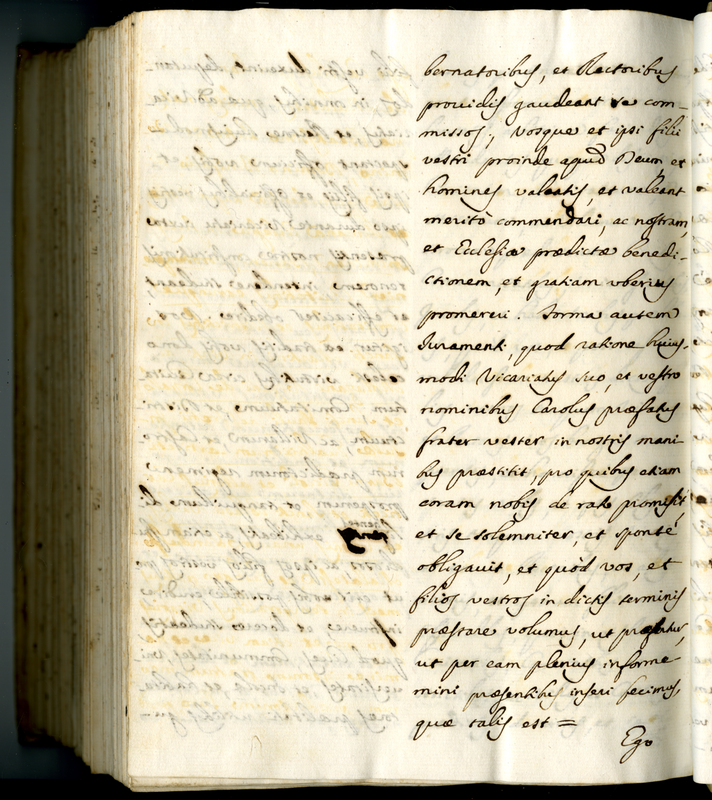 bernatoribus, et Rectoribus
prouidis gaudeant se com-
missos; Vosque et ipsi filii
vestri proinde apud Deum, et
homines valeatis, et valeant
merito commendari, ac nostram,
et Ecclesiæ prædictæ benedi-
ctionem, et gratiam vberius
promereri. Forma autem
Iuramenti, quod ratione huius-
modi Vicariatus suo, et vestro
nominibus Carolus præfatus
frater vester in nostris mani-
bus præstitit, pro quibus etiam
coram nobis de rato promisit,
et se solemniter, et sponte
obligauit, et quòd vos, et
filios vestros in dictis terminis
præstare volumus, ut præfertur,
ut per eam plenius informe
mini præsentibus inseri fecimus,
quæ talis est =
Ego